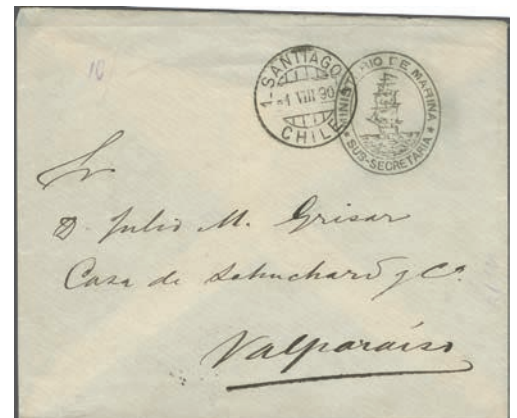 10
1-SANTIAGO
-1 VIII 90
CHILE
MINISTERIO DE MARINA
* SUB-SECRETARIA *
Sr
D. Julio M. Grisar
Casa de y Ca.
Valparaiso